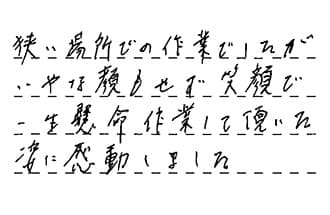 狭い場所での作業でしたが
いやな顔もせず笑顔で
一生懸命作業して頂いた
姿に感動しました